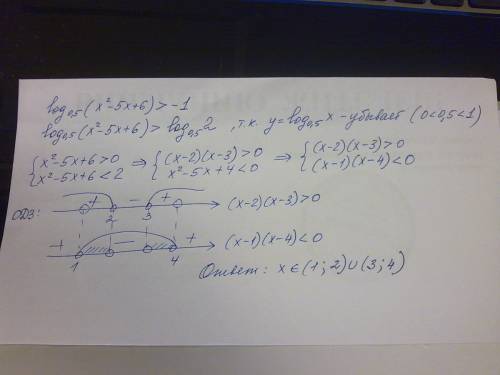 log₀,₅(x²-5x+6)>-1
log₀,₅(x²-5x+6)>log₀,₅2, т.к. y=log₀,₅x - убывает (0<0,5<1)
{x²-5x+6>0 ⇒ {(x-2)(x-3)>0 ⇒ {(x-2)(x-3)>0
{x²-5x+6<2 {x²-5x+4<0 {(x-1)(x-4)<0
ОДЗ: + - + (x-2)(x-3)>0
2 3
+ - + (x-1)(x-4)<0
1 4
Ответ: x∈(1;2)∪(3;4)